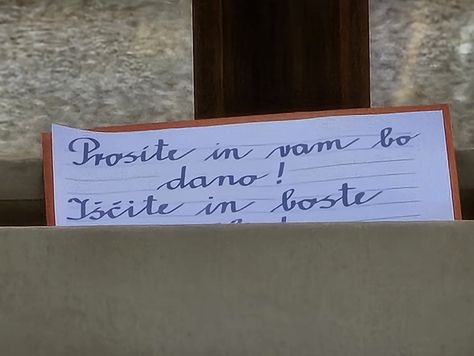 Prosite in vam bo
dano!
Iščite in boste